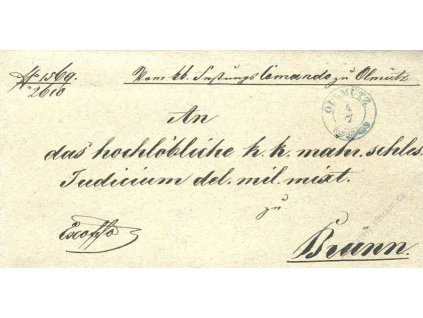 No 1569.
2610
Vom k.k. Festungs Comando zu Olmütz
OLMÜTZ
7
An
das hochlöbliche k. k. mähr. schles.
Judicium del. mil. mixt.
zu
Exoffo
Brünn.